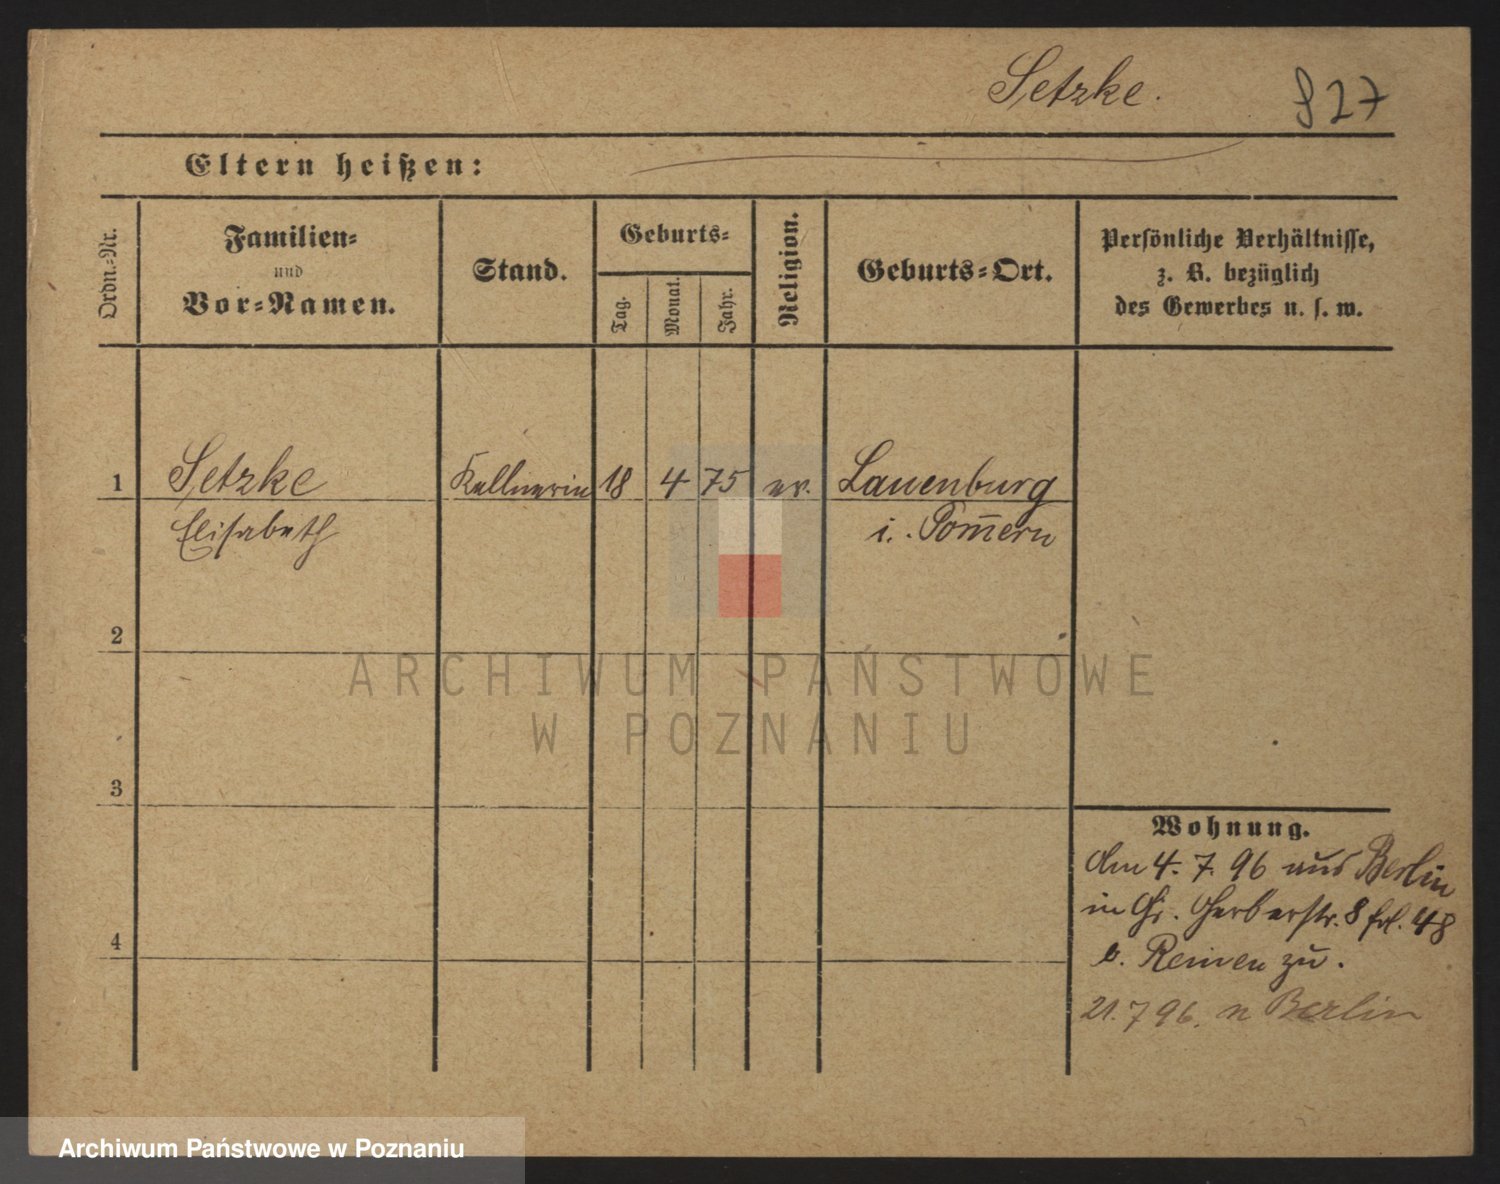 Setzke.
827
Eltern heißen:
Ordn.-Nr.
Familien-
und
Vor-Namen.
Stand.
Geburts-
Tag.
Monat.
Jahr.
Religion.
Geburts-Ort.
Persönliche Verhältnisse,
z. B. bezüglich
des Gewerbes u. s. w.
1 Setzke Kellnerin 18 4 75 ev. Lauenburg
Elisabeth i. Pom̅ern
2
3
4
Wohnung.
Am 4. 7. 96 aus Berlin
in Gr. Gerberstr. 8 frl. 48
b. Reiven zu.
21.7 96. n Berlin
ARCHIWUM PAŃSTWOWE
W POZNANIU
Archiwum Państwowe w Poznaniu